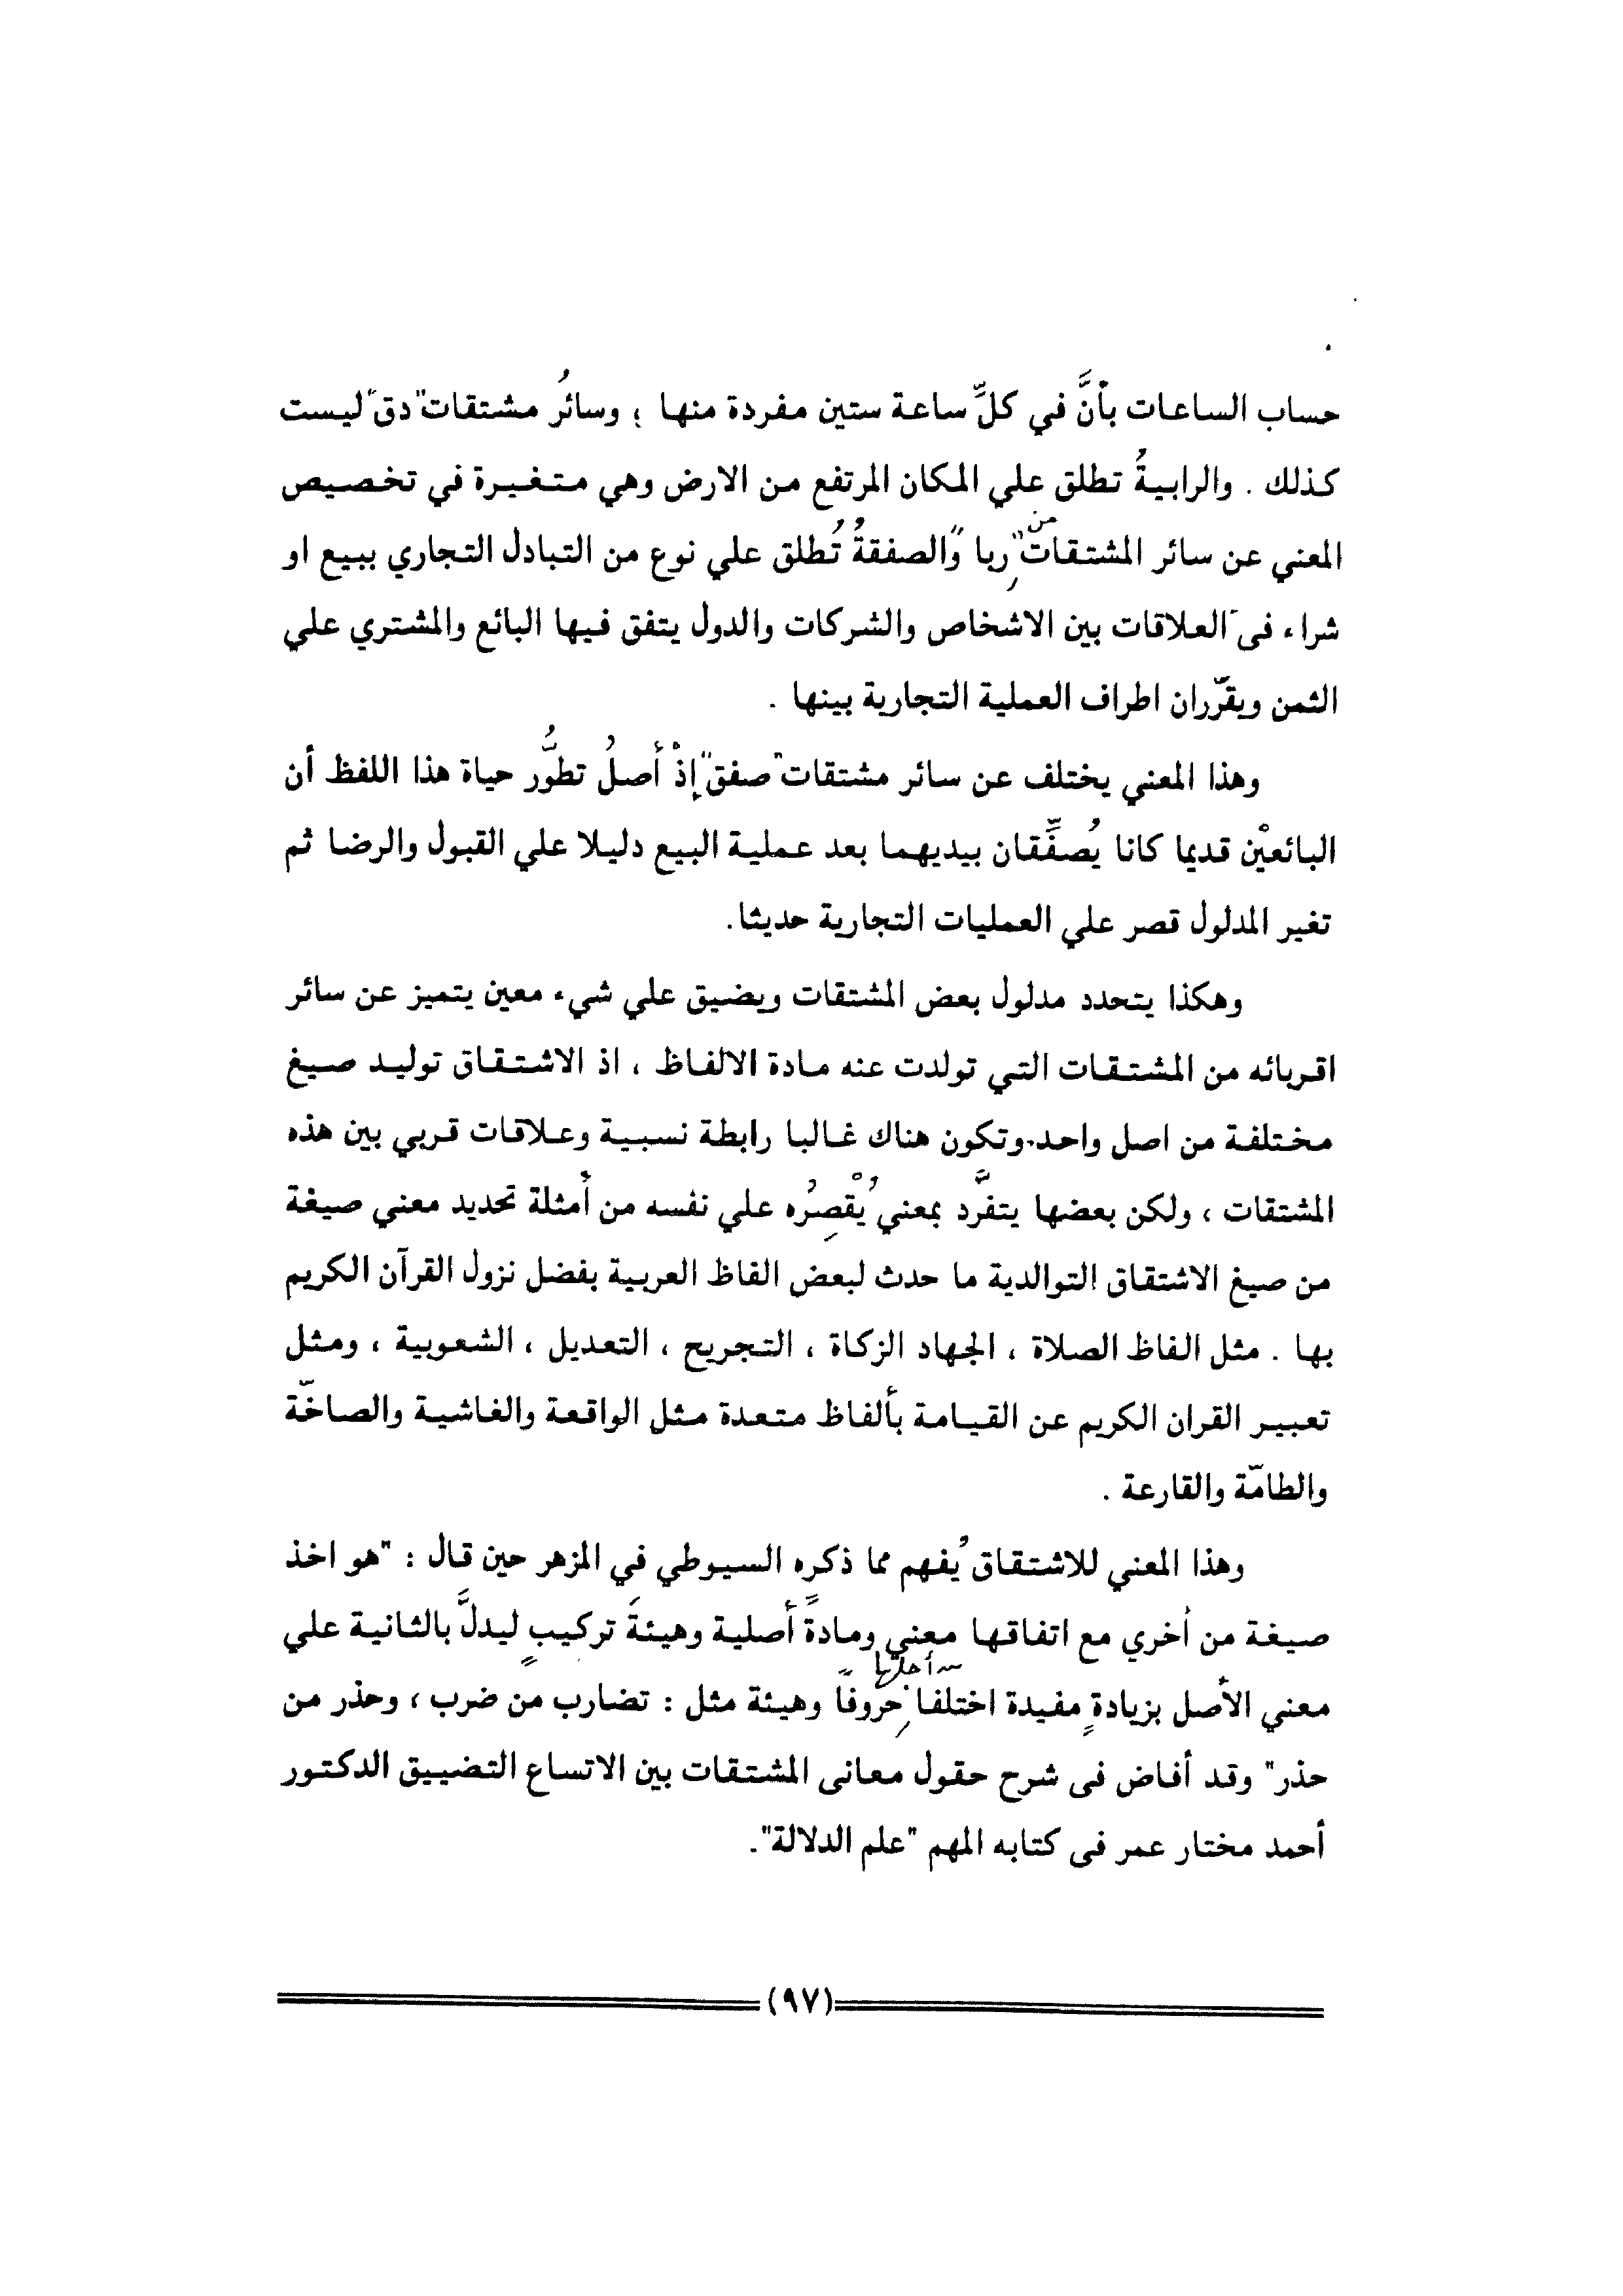 حساب الساعات بأنَّ في كلِّ ساعة ستين مفردة منها ؛ وسائرُ مشتقات"دق"ليست
كذلك . والرابيةُ تطلق علي المكان المرتفع من الارض وهي متغيرة في تخصيص
المعني عن سائر المشتقات من"رِبا "والصفقةُ تُطلق علي نوع من التبادل التجاري ببيع او
شراء فى العلاقات بين الاشخاص والشركات والدول يتفق فيها البائع والمشتري علي
الثمن ويقرّران اطراف العملية التجارية بينها .
وهذا المعني يختلف عن سائر مشتقات"صفق"إذْ أصلُ تطوُّر حياة هذا اللفظ أن
البائعيْن قديما كانا يُصفِّقان بيديهما بعد عملية البيع دليلا علي القبول والرضا ثم
تغير المدلول قصر علي العمليات التجارية حديثا.
وهكذا يتحدد مدلول بعض المشتقات ويضيق علي شيء معين يتميز عن سائر
اقربائه من المشتقات التي تولدت عنه مادة الالفاظ ، اذ الاشتقاق توليد صيغ
مختلفة من اصل واحد.وتكون هناك غالبا رابطة نسبية وعلاقات قربي بين هذه
المشتقات ، ولكن بعضها يتفرَّد بمعني يُقْصِرُه علي نفسه من أمثلة تحديد معني صيغة
من صيغ الاشتقاق التوالدية ما حدث لبعض الفاظ العربية بفضل نزول القرآن الكريم
بها . مثل الفاظ الصلاة ، الجهاد الزكاة ، التجريح ، التعديل ، الشعوبية ، ومثل
تعبير القران الكريم عن القيامة بألفاظ متعدة مثل الواقعة والغاشية والصاخّة
والطامّة والقارعة .
وهذا المعني للاشتقاق يُفهم مما ذكره السيوطي في المزهر حين قال : "هو اخذ
صيغة من أخري مع اتفاقها معني ومادةً أصلية وهيئةَ تركيبٍ ليدلَّ بالثانية علي
معني الأصل بزيادةٍ مفيدة من أجلها اختلفا حروفاً وهيئة مثل : تضارب من ضرب ، وحذر من
حذر" وقد أفاض فى شرح حقول معانى المشتقات بين الاتساع التضييق الدكتور
أحمد مختار عمر فى كتابه المهم "علم الدلالة".
(٩٧)